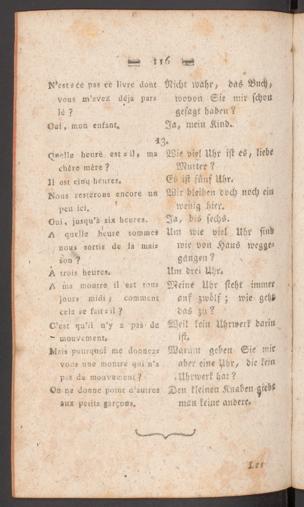 116
N'est-ce pas ce livre dont
vous m'avez déja parlé ?
Oui, mon enfant.
Nicht wahr, das Buch,
wovon Sie mir schon
gesagt haben?
Ja, mein Kind.
13.
Quelle heure est-il, ma
chère mère ?
Il est cinq heures.
Nous resterons encore un
peu ici.
Oui, jusqu'à six heures.
A quelle heure sommes
nous sortis de la maison ?
À trois heures.
A ma montre il est toujours
midi; comment
cela se fait-il ?
C'est qu'il n'y a pas de
mouvement.
Mais pourquoi me donnez
vous une montre qui n'a
pas de mouvement ?
On ne donne point d'autres
aux petits garçons.
Wie viel Uhr ist es, liebe
Mutter?
Es ist fünf Uhr.
Wir bleiben doch noch ein
wenig hier.
Ja, bis sechs.
Um wie viel Uhr sind
wir von Haus weggegangen?
Um drei Uhr.
Meine Uhr steht immer
auf zwölf; wie geht
das zu?
Weil kein Uhrwerk darin
ist.
Warum geben Sie mir
aber eine Uhr, die kein
Uhrwerk hat?
Den kleinen Knaben giebt
man keine andere.